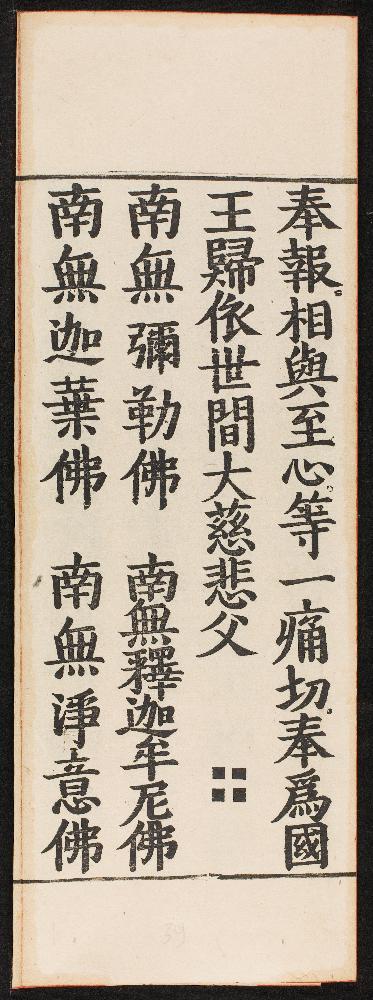 奉報相與至心等一痛切奉爲國
王歸依世間大慈悲父
南無彌勒佛　南無釋迦牟尼佛
南無迦葉佛　南無淨意佛
39